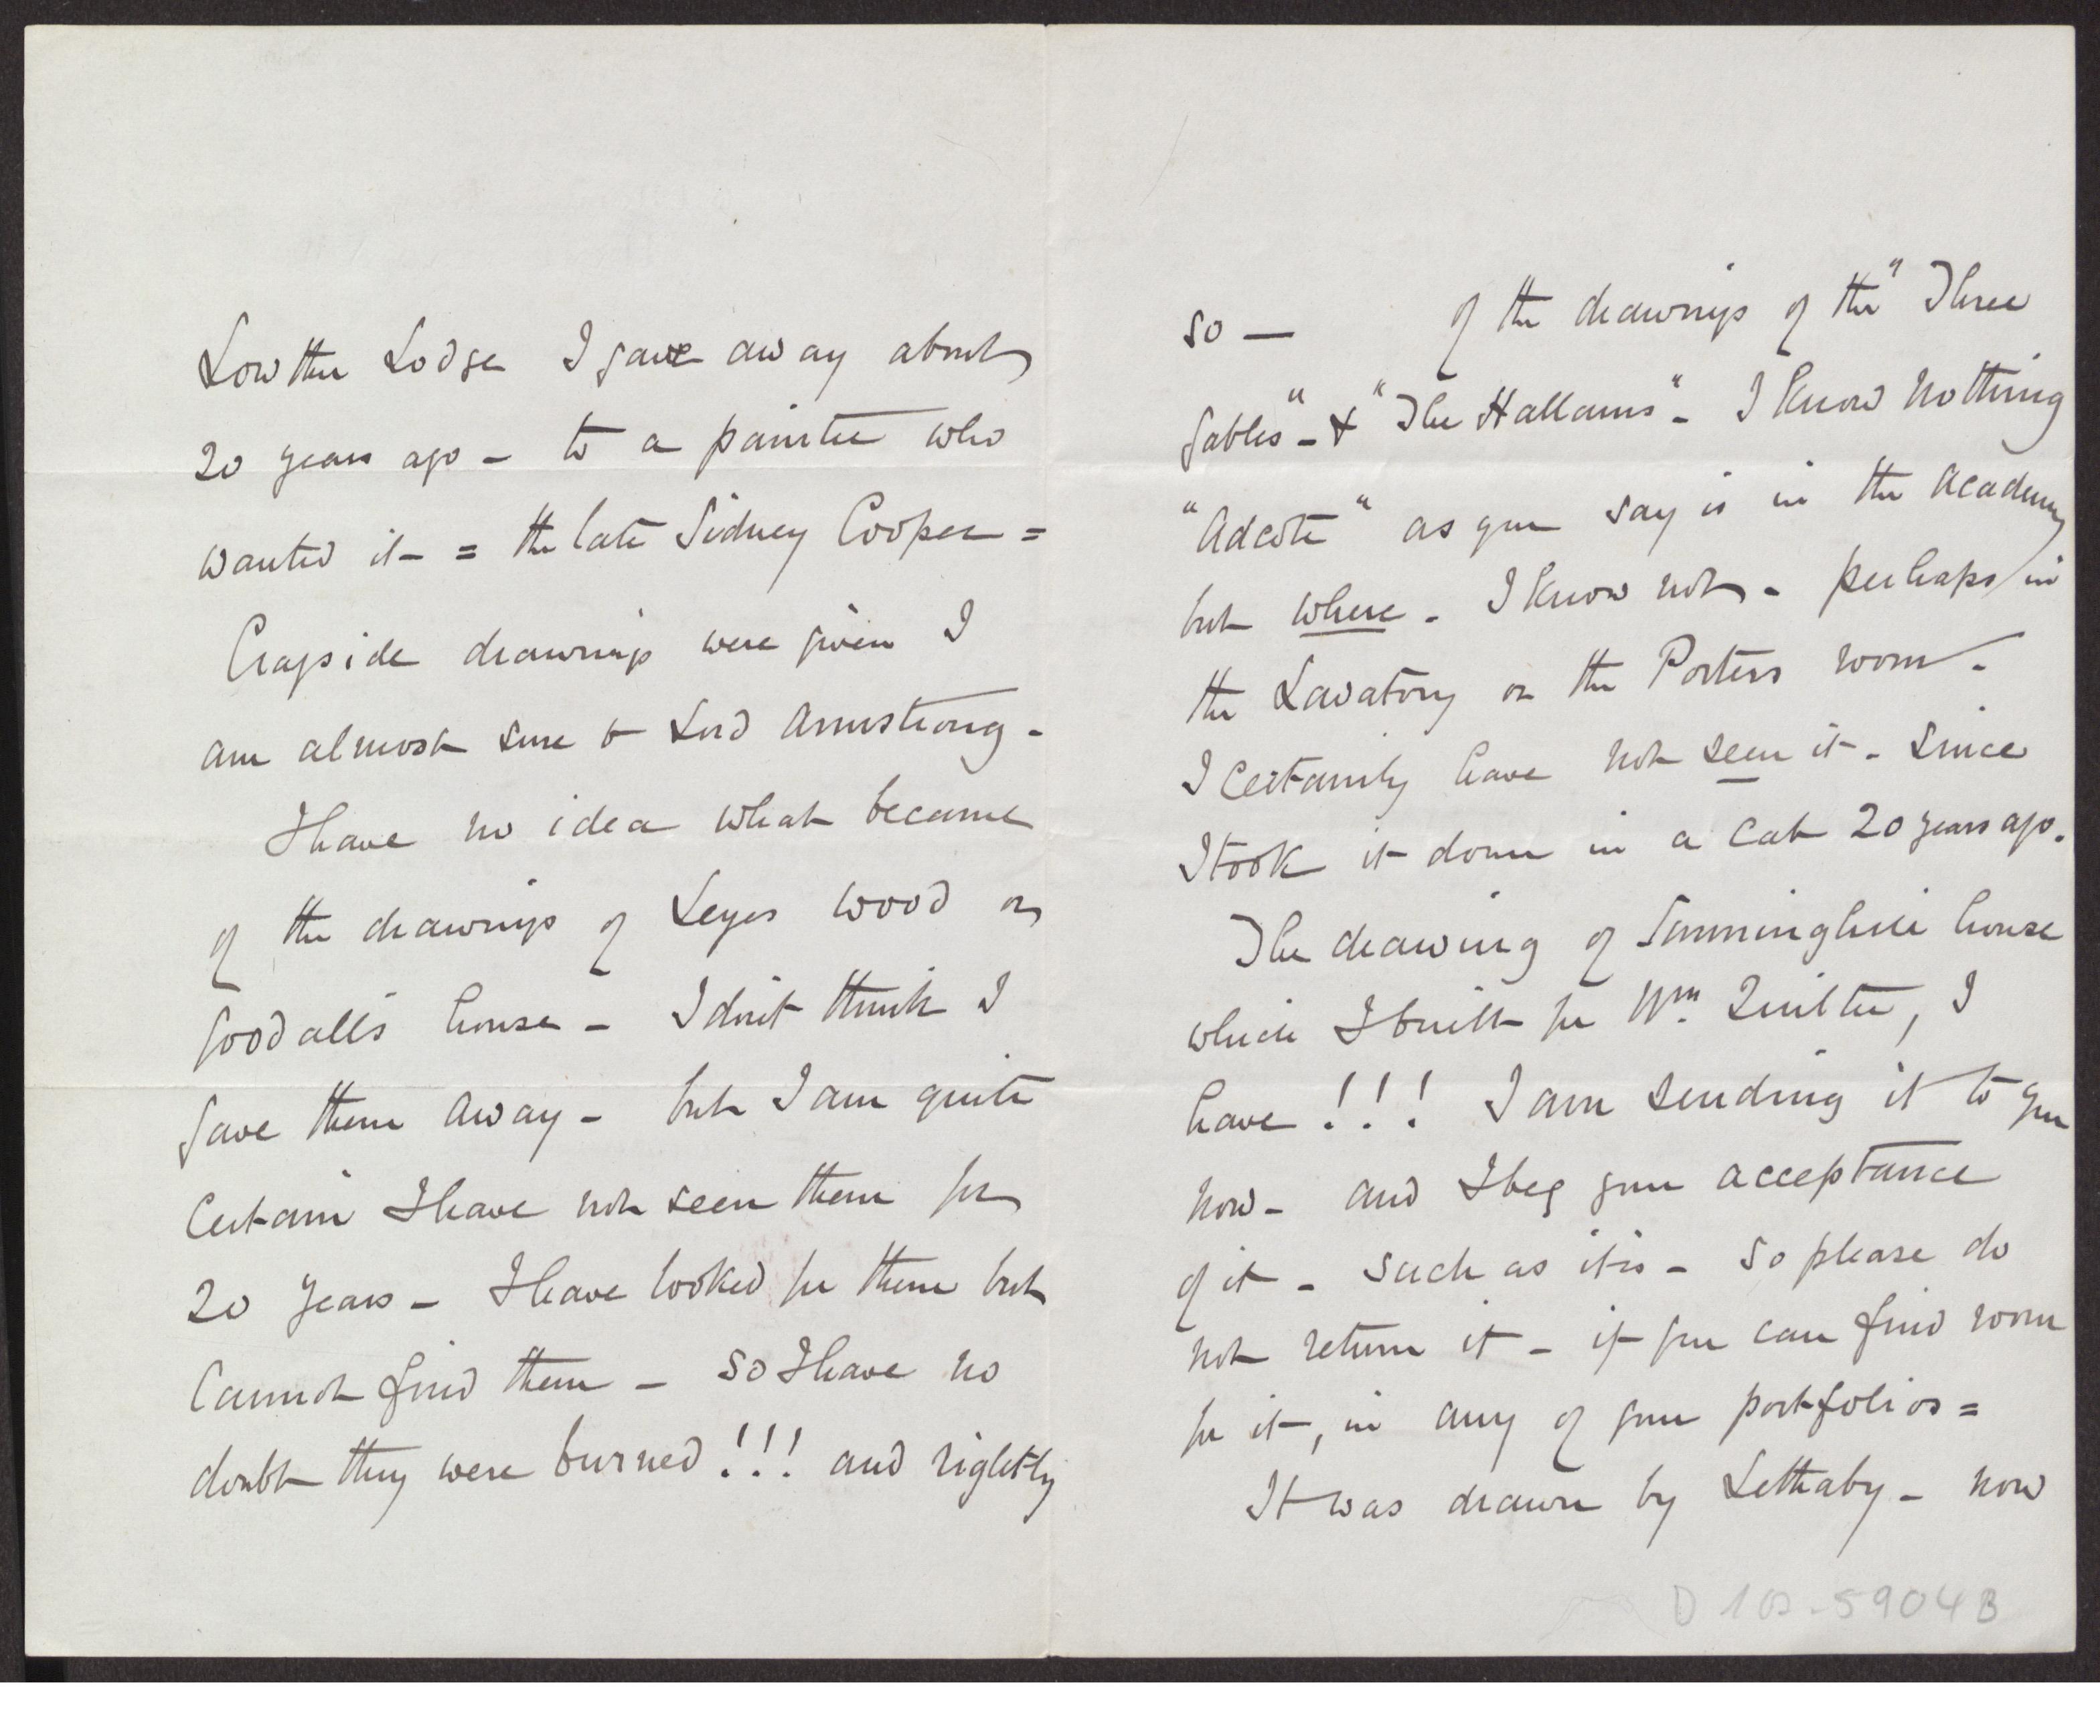 Lowther Lodge I gave away about
20 years ago – to a painter who
wanted it – = the late Sidney Cooper =
Cragside drawings were given I
am almost sure to Lord Armstrong –
I have no idea what became
of the drawings of Leyes Wood or
Goodalls house – I don't think I
gave them away – but I am quite
certain I have not seen them for
20 years – I have looked for them but
cannot find them – so I have no
doubt they were burned!!! and rightly
so – of the drawings of the "Three
Gables" – & "The Hallams" – I know nothing
"Adcote" as you say is in the Academy
but where – I know not – perhaps in
the Lavatory or the Porters room –
I certainly have not seen it – since
I took it down in a cab 20 years ago.
The drawing of Sunninghill house
which I built for Wm. Quilter, I
have!!! I am sending it to you
now – and I beg your acceptance
of it – such as it is – so please do
not return it – if you can find room
for it, in any of your portfolios =
It was drawn by Lethaby – now
D 100-5904 B